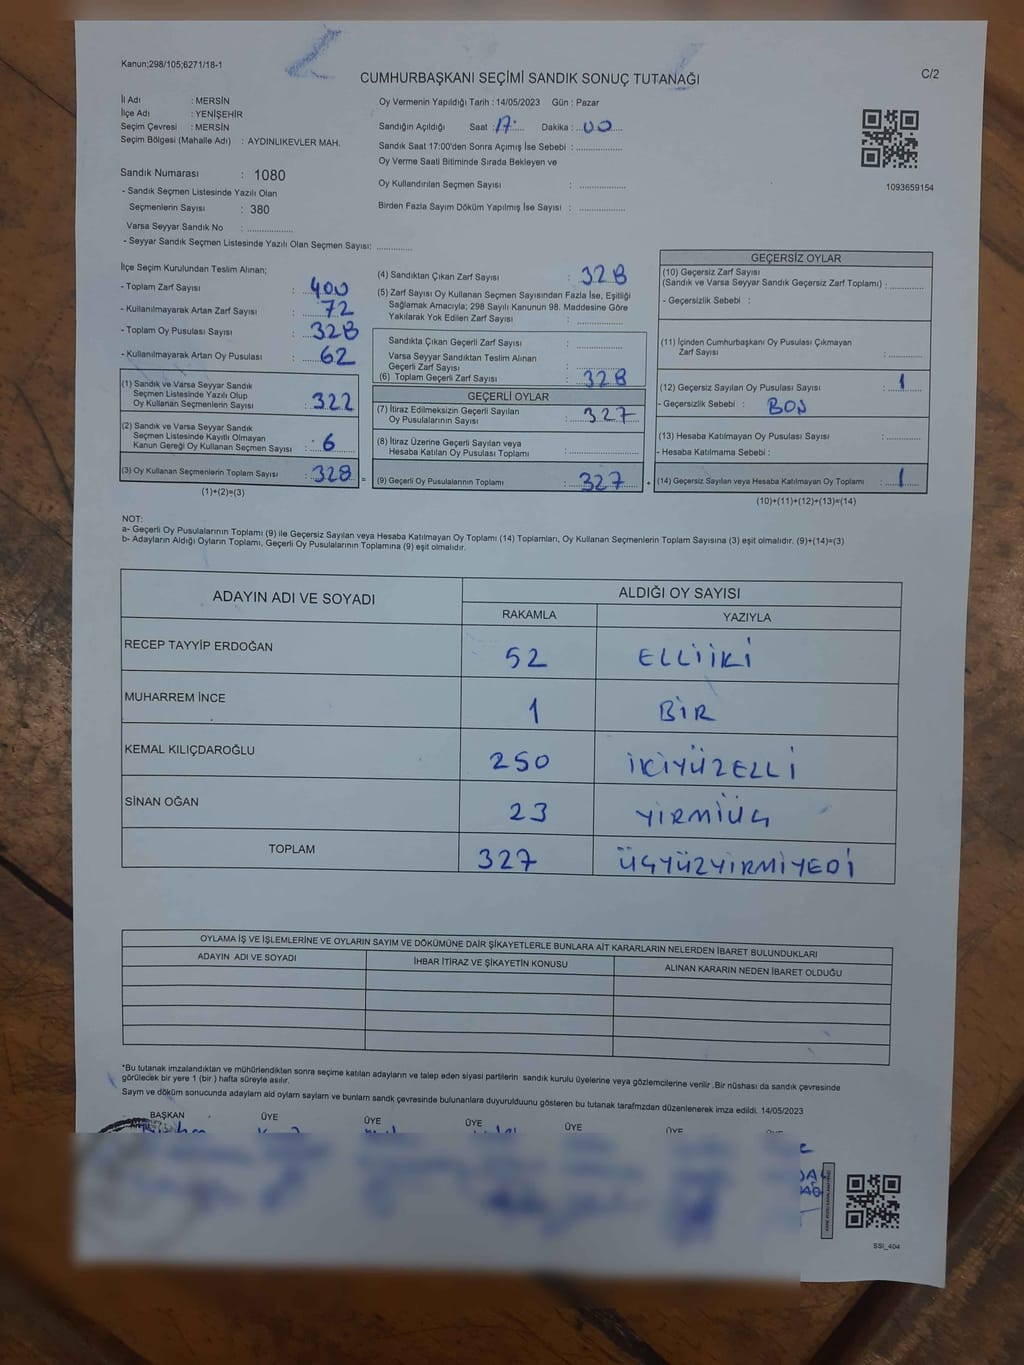 Kanun;298/105;6271/18-1
C/2
CUMHURBAŞKANI SEÇİMİ SANDIK SONUÇ TUTANAĞI
İl Adı : MERSİN
İlçe Adı : YENİŞEHİR
Seçim Çevresi : MERSİN
Seçim Bölgesi (Mahalle Adı) : AYDINLIKEVLER MAH.
Oy Vermenin Yapıldığı Tarih : 14/05/2023 Gün : Pazar
Sandığın Açıldığı Saat : 17 Dakika : 00
Sandık Saat 17:00'den Sonra Açımış İse Sebebi : ..............
Oy Verme Saati Bitiminde Sırada Bekleyen ve
Oy Kullandırılan Seçmen Sayısı : ..............
Birden Fazla Sayım Döküm Yapılmış İse Sayısı : ..............
1093659154
Sandık Numarası : 1080
- Sandık Seçmen Listesinde Yazılı Olan
Seçmenlerin Sayısı : 380
Varsa Seyyar Sandık No : ..............
- Seyyar Sandık Seçmen Listesinde Yazılı Olan Seçmen Sayısı: ............
İlçe Seçim Kurulundan Teslim Alınan;
- Toplam Zarf Sayısı : 400
- Kullanılmayarak Artan Zarf Sayısı : 72
- Toplam Oy Pusulası Sayısı : 328
- Kullanılmayarak Artan Oy Pusulası : 62
(1) Sandık ve Varsa Seyyar Sandık
Seçmen Listesinde Yazılı Olup
Oy Kullanan Seçmenlerin Sayısı : 322
(2) Sandık ve Varsa Seyyar Sandık
Seçmen Listesinde Kayıtlı Olmayan
Kanun Gereği Oy Kullanan Seçmen Sayısı : 6
(3) Oy Kullanan Seçmenlerin Toplam Sayısı : 328 =
(1)+(2)=(3)
(4) Sandıktan Çıkan Zarf Sayısı : 328
(5) Zarf Sayısı Oy Kullanan Seçmen Sayısından Fazla İse, Eşitliği
Sağlamak Amacıyla; 298 Sayılı Kanunun 98. Maddesine Göre
Yakılarak Yok Edilen Zarf Sayısı : ..............
Sandıkta Çıkan Geçerli Zarf Sayısı : ..............
Varsa Seyyar Sandıktan Teslim Alınan
Geçerli Zarf Sayısı : ..............
(6) Toplam Geçerli Zarf Sayısı : 328
GEÇERLİ OYLAR
(7) İtiraz Edilmeksizin Geçerli Sayılan
Oy Pusulalarının Sayısı : 327
(8) İtiraz Üzerine Geçerli Sayılan veya
Hesaba Katılan Oy Pusulası Toplamı : ..............
(9) Geçerli Oy Pusulalarının Toplamı : 327 +
GEÇERSİZ OYLAR
(10) Geçersiz Zarf Sayısı
(Sandık ve Varsa Seyyar Sandık Geçersiz Zarf Toplamı) : ............
- Geçersizlik Sebebi :
(11) İçinden Cumhurbaşkanı Oy Pusulası Çıkmayan
Zarf Sayısı : ............
(12) Geçersiz Sayılan Oy Pusulası Sayısı : 1
- Geçersizlik Sebebi : BOŞ
(13) Hesaba Katılmayan Oy Pusulası Sayısı : ............
- Hesaba Katılmama Sebebi :
(14) Geçersiz Sayılan veya Hesaba Katılmayan Oy Toplamı : 1
(10)+(11)+(12)+(13)=(14)
NOT:
a- Geçerli Oy Pusulalarının Toplamı (9) ile Geçersiz Sayılan veya Hesaba Katılmayan Oy Toplamı (14) Toplamları, Oy Kullanan Seçmenlerin Toplam Sayısına (3) eşit olmalıdır. (9)+(14)=(3)
b- Adayların Aldığı Oyların Toplamı, Geçerli Oy Pusulalarının Toplamına (9) eşit olmalıdır.
ADAYIN ADI VE SOYADI ALDIĞI OY SAYISI
RAKAMLA YAZIYLA
RECEP TAYYİP ERDOĞAN 52 ELLİİKİ
MUHARREM İNCE 1 BİR
KEMAL KILIÇDAROĞLU 250 İKİYÜZELLİ
SİNAN OĞAN 23 YİRMİÜÇ
TOPLAM 327 ÜÇYÜZYİRMİYEDİ
OYLAMA İŞ VE İŞLEMLERİNE VE OYLARIN SAYIM VE DÖKÜMÜNE DAİR ŞİKAYETLERLE BUNLARA AİT KARARLARIN NELERDEN İBARET BULUNDUKLARI
ADAYIN ADI VE SOYADI İHBAR İTİRAZ VE ŞİKAYETİN KONUSU ALINAN KARARIN NEDEN İBARET OLDUĞU
*Bu tutanak imzalandıktan ve mühürlendikten sonra seçime katılan adayların ve talep eden siyasi partilerin sandık kurulu üyelerine veya gözlemcilerine verilir .Bir nüshası da sandık çevresinde
görülecek bir yere 1 (bir ) hafta süreyle asılır.
Sayım ve döküm sonucunda adayların aldı oyların sayların ve bunların sandık çevresinde bulunanlara duyurulduunu gösteren bu tutanak tarafmzdan düzenlenerek imza edildi. 14/05/2023
BAŞKAN ÜYE ÜYE ÜYE ÜYE
SSİ_404